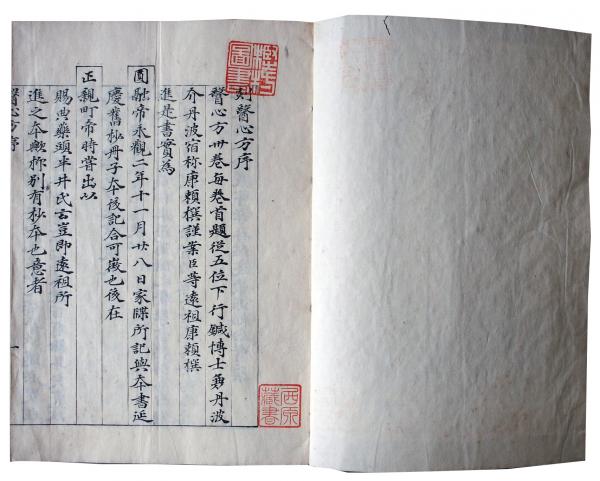 刻醫心方序
醫心方卅卷每卷首題從五位下行鍼博士兼丹波
介丹波宿祢康頼撰謹案臣等遠祖康頼撰
進是書實爲
圓融帝永觀二年十一月廿八日家牒所記與本書延
慶舊抄丹子本後記合可徵也後在
正親町帝時嘗出以
賜典藥頭半井氏云豈即遠祖所
進之本歟抑別有抄本也意者
醫心方序
一
圖書
西京
藏書